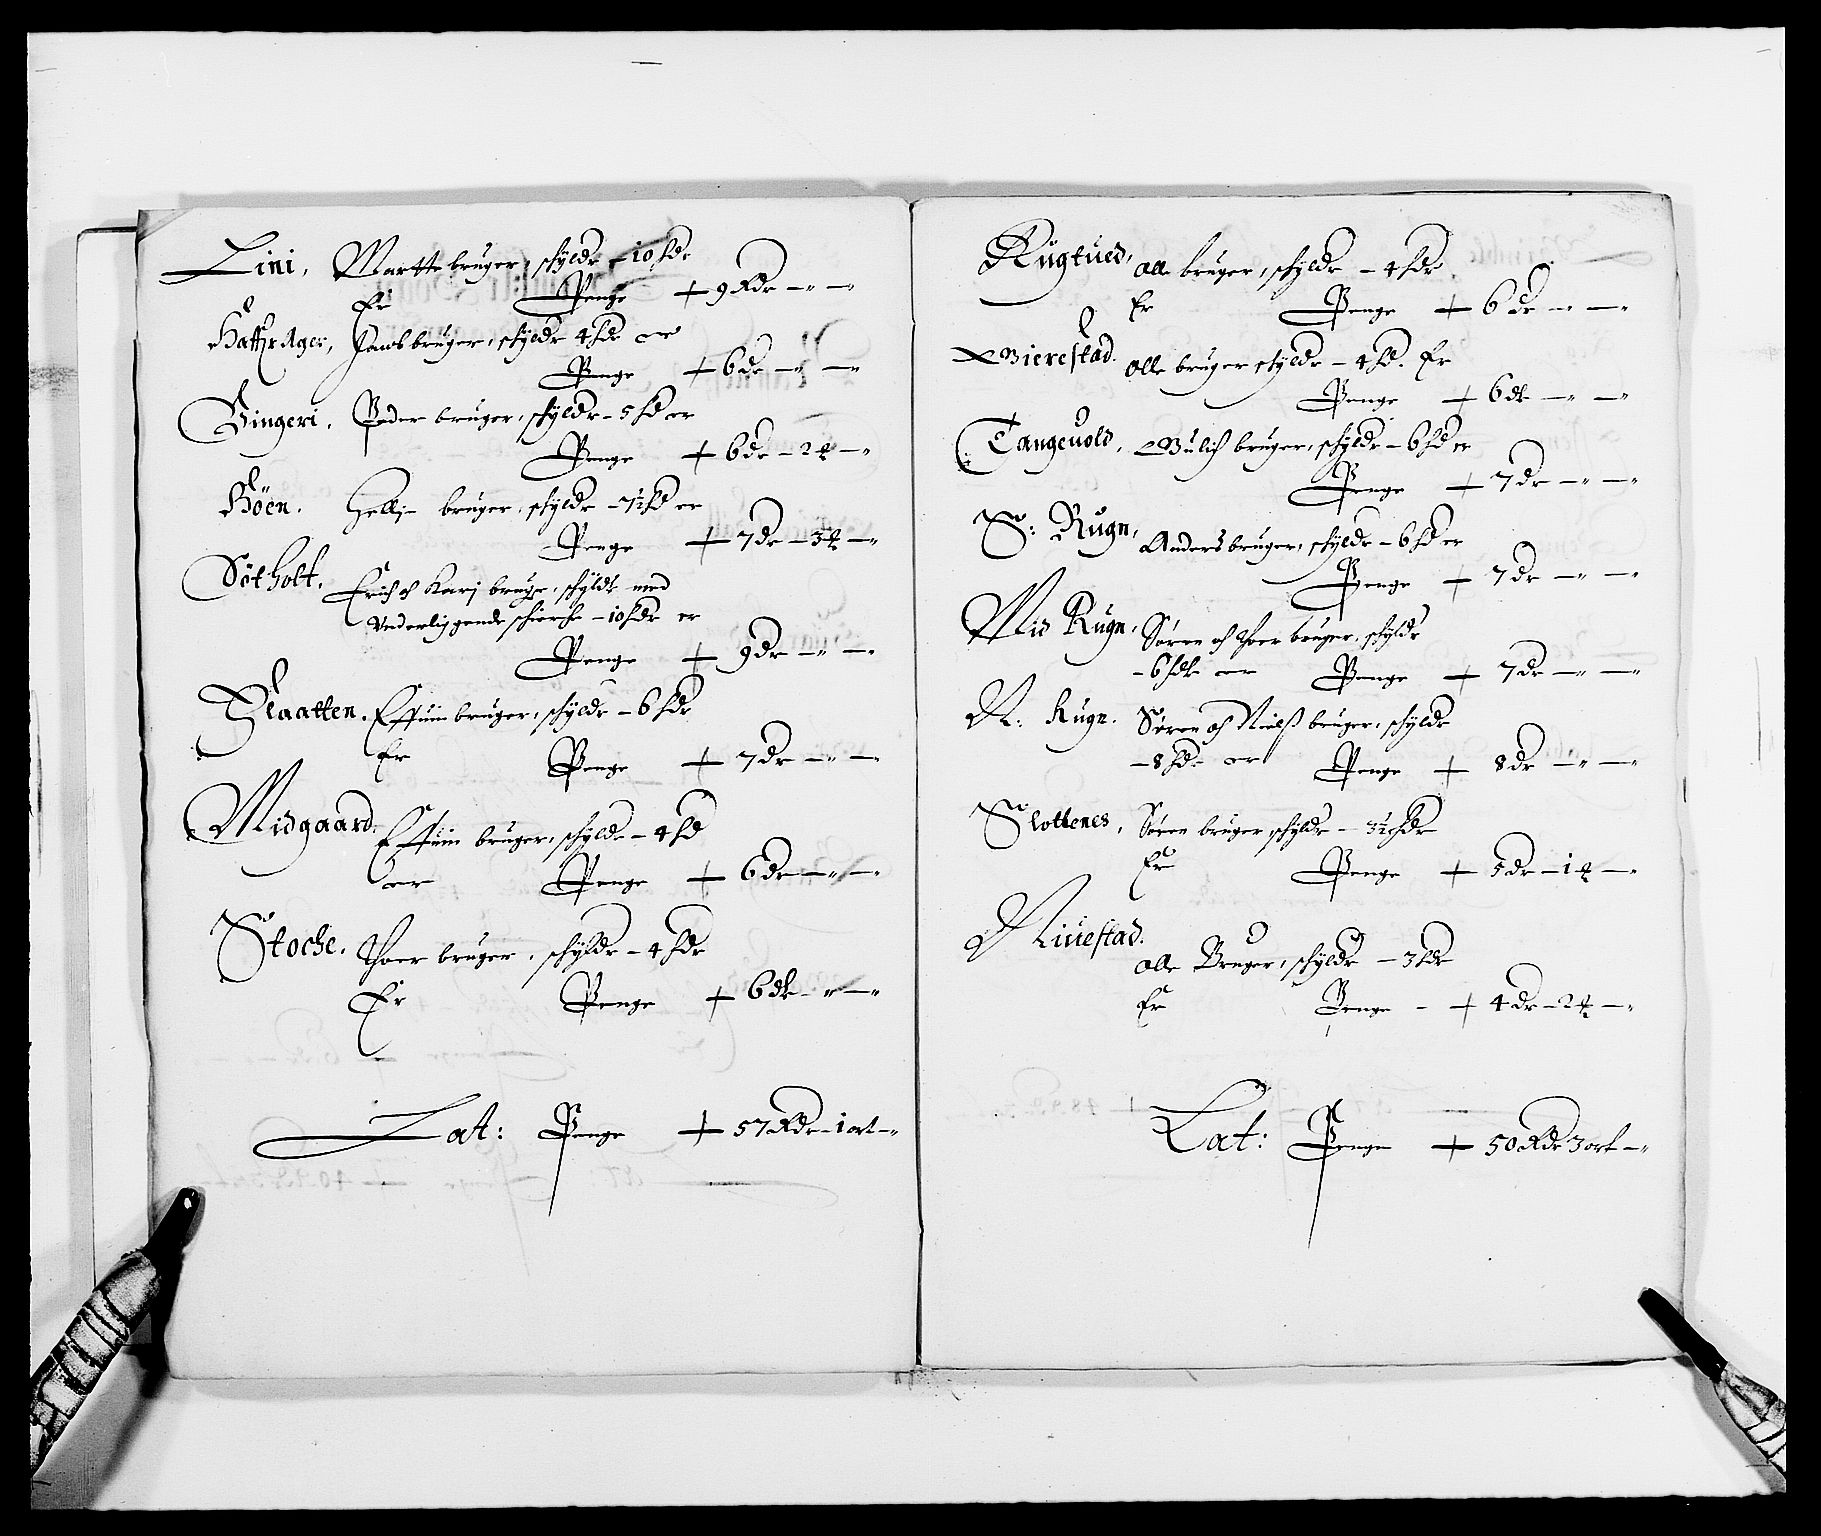 Lini, Martte bruger, schyldr – 10 sdr
Er Penge + 9 Rdr – „ – „
HaffrAger, Jacob bruger, schyldr 4 sdr er
Penge + 6 dr – „ – „
Gingeri, Peder bruger, schyldr – 5 sd er
Penge + 6 dr – 2 ort – „
Böen. Hellie bruger, schyldr – 7½ sd er
Penge + 7 dr – 3 ort – „
Sötholt, Erich oc Karj bruger, schyldr med
Underliggende schierche – 10 sdr er
Penge + 9 dr – „ – „
Slaatten. Effuin bruger, schyldr – 6 sdr
Er Penge + 7 dr – „ – „
Midgaard. Effuin bruger, schyldr – 4 sd
er Penge + 6 dr – „ – „
Stoche. Thoer bruger, schyldr – 4 sdr
Er Penge + 6 dr – „ – „
Lat: Penge + 57 Rdr – 1 ort – „
Rugtued, Olle bruger, schyldr – 4 sdr
Er Penge + 6 dr – „ – „
Bierestad. Olle bruger schyldr – 4 sd. Er
Penge + 6 dr – „ – „
Tangeuold, Wulich bruger, schyldr – 6 sd er
Penge + 7 dr – „ – „
S: Rugn, Anders bruger, schyldr – 6 sd er
Penge + 7 dr – „ – „
Mid Rugn, Sören oc Thoer bruger, schyldr
– 6 sdr er Penge + 7 dr – „ – „
N: Rugn. Sören oc Nielß bruger, schyldr
– 8 sdr er Penge + 8 dr – „ – „
Slottenes, Sören bruger schyldr – 3½ sdr
Er Penge + 5 dr – 1 ort – „
Niuestad. Olle Bruger, schyldr – 3 sdr
Er Penge – + 4 dr – 2 ort – „
Lat: Penge + 50 Rdr 3 ort – „